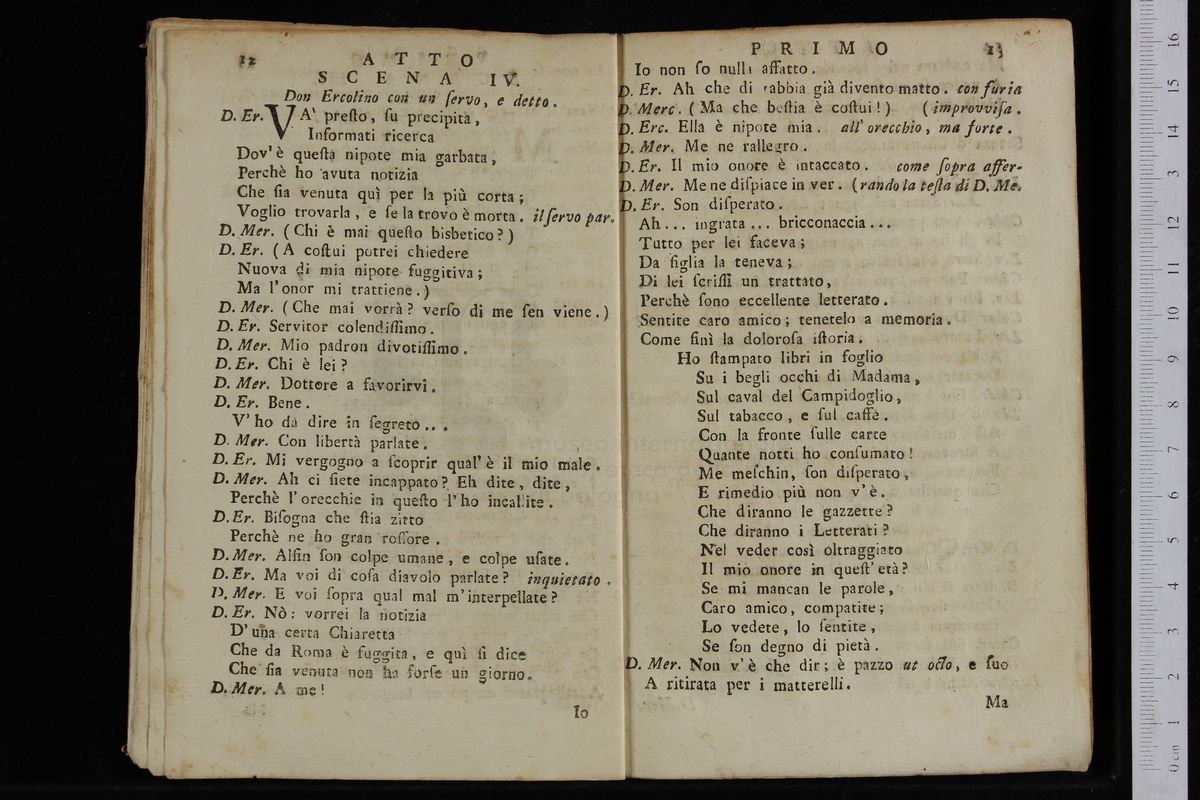 12
ATTO
SCENA IV.
Don Ercolino con un ſervo, e detto.
D. Er. VA' preſto, fu precipita,
Informati ricerca
Dov'è queſta nipote mia garbata,
Perchè ho avuta notizia
Che ſia venuta quì per la più corta;
Voglio trovarla, e ſe la trovo è morta. il ſervo par.
D. Mer. (Chi è mai queſto bisbetico?)
D. Er. (A coſtui potrei chiedere
Nuova di mia nipote fuggitiva;
Ma l'onor mi trattiene.)
D. Mer. (Che mai vorrà? verſo di me ſen viene.)
D. Er. Servitor colendiſſimo.
D. Mer. Mio padron divotiſſimo.
D. Er. Chi è lei?
D. Mer. Dottore a favorirvi.
D. Er. Bene.
V'ho da dire in ſegreto...
D. Mer. Con libertà parlate.
D. Er. Mi vergogno a ſcoprir qual'è il mio male.
D. Mer. Ah ci ſiete incappato? Eh dite, dite,
Perchè l'orecchie in queſto l'ho incallite.
D. Er. Biſogna che ſtia zitto
Perchè ne ho gran roſſore.
D. Mer. Alfin ſon colpe umane, e colpe uſate.
D. Er. Ma voi di coſa diavolo parlate? inquietato.
D. Mer. E voi ſopra qual mal m'interpellate?
D. Er. Nò: vorrei la notizia
D'una certa Chiaretta
Che da Roma è fuggita, e quì ſi dice
Che ſia venuta non ha forſe un giorno.
D. Mer. A me!
Io
PRIMO
13
Io non ſo nulla affatto.
D. Er. Ah che di rabbia già divento matto. con furia
D. Merc. (Ma che beſtia è coſtui!) (improvviſa.
D. Erc. Ella è nipote mia. all' orecchio, ma forte.
D. Mer. Me ne rallegro.
D. Er. Il mio onore è intaccato. come ſopra affer-
D. Mer. Me ne diſpiace in ver. (rando la teſta di D. Me.
D. Er. Son diſperato.
Ah... ingrata... bricconaccia...
Tutto per lei faceva;
Da figlia la teneva;
Di lei ſcriſſi un trattato,
Perchè ſono eccellente letterato.
Sentite caro amico; tenetelo a memoria.
Come finì la doloroſa iſtoria.
Ho ſtampato libri in foglio
Su i begli occhi di Madama,
Sul caval del Campidoglio,
Sul tabacco, e ſul caffè.
Con la fronte ſulle carte
Quante notti ho conſumato!
Me meſchin, ſon diſperato,
E rimedio più non v'è.
Che diranno le gazzette?
Che diranno i Letterati?
Nel veder così oltraggiato
Il mio onore in queſt'età?
Se mi mancan le parole,
Caro amico, compatite;
Lo vedete, lo ſentite,
Se ſon degno di pietà.
D. Mer. Non v'è che dir; è pazzo ut octo, e ſuo
A ritirata per i matterelli.
Ma